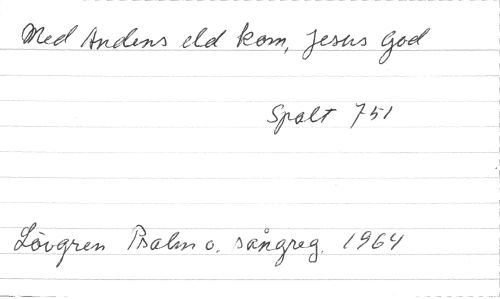 Med Andens eld kom, Jesus God
Spalt 751
Lövgren Psalm o. sångreg. 1964